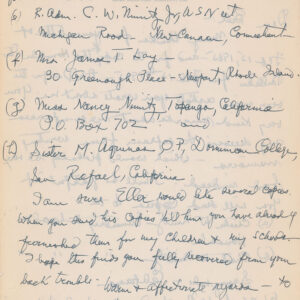 (e) R. Adm. C. W. Nimitz Jr, U S N ret
Michigan Road - New Canaan, Connecticut -
(f) Mrs James T. Lay -
30 Greenough Place - Newport, Rhode Island.
(g) Miss Nancy Nimitz, Topanga, California
P.O. Box 702 and
(h) Sister M. Aquinas O.P., Dominican College,
San Rafael, California.
I am sure Eller would like several copies.
When you send his copies tell him you have already
furnished them for my children & my schools.
I hope this finds you fully recovered from your
back trouble. Warm & affectionate regards - to